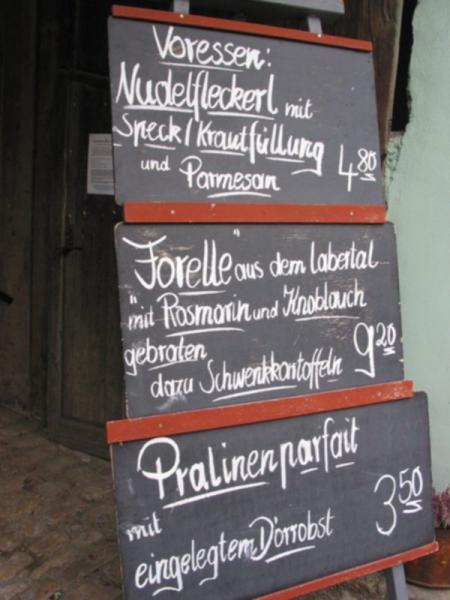 Voressen:
Nudelfleckerl mit
Speck/Krautfüllung
und Parmesan 4 80
"Forelle" aus dem Labertal
mit Rosmarin und Knoblauch
gebraten
dazu Schwenkkartoffeln 9 20
Pralinenparfait
mit
eingelegtem Dörrobst 3 50